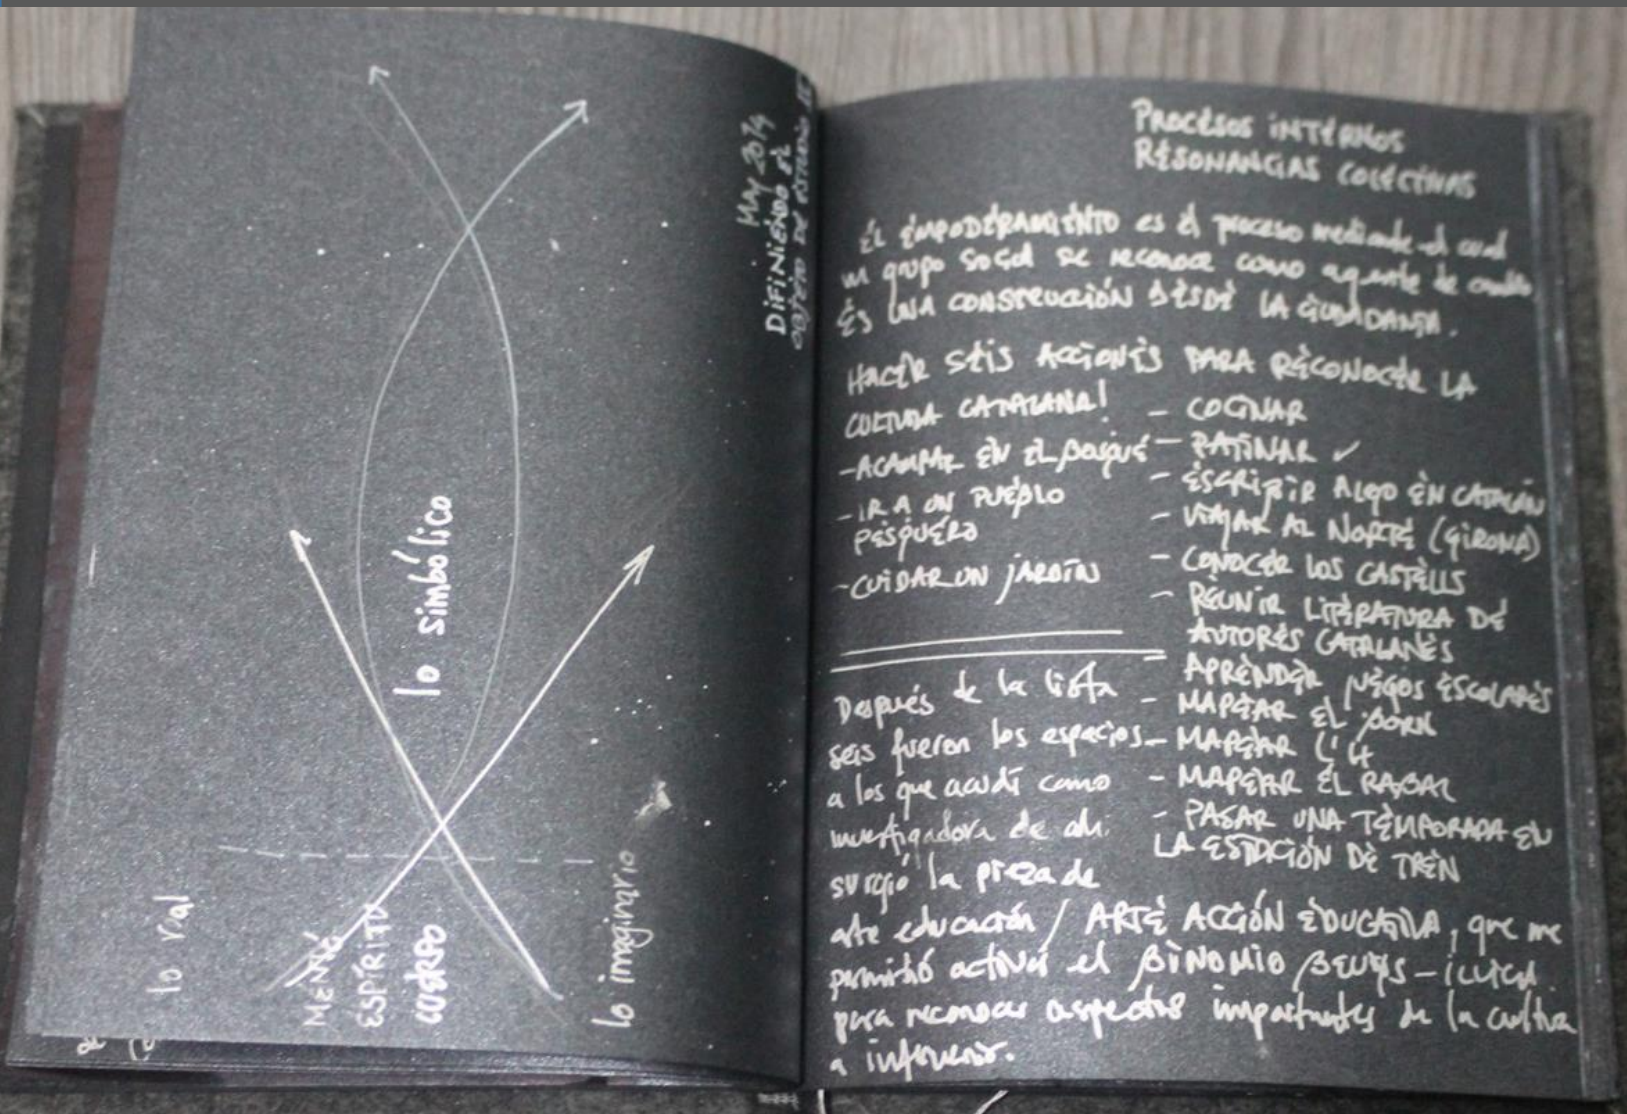 lo simbólico
lo real
MENTE
ESPÍRITU
CUERPO
lo imaginario
MAY 2014
DIFINIENDO EL
OBJETO DE ESTUDIO
PROCESOS INTERNOS
RESONANCIAS COLECTIVAS
EL EMPODERAMIENTO es el proceso mediante el cual
un grupo social se reconoce como agente de cambio
ES UNA CONSTRUCCIÓN DESDE LA CIUDADANIA.
HACER SEIS ACCIONES PARA RECONOCER LA
CULTURA CATALANA!
- ACAMPAR EN EL BOSQUE
- IR A UN PUEBLO
PESQUERO
- CUIDAR UN JARDÍN
- COCINAR
- PATINAR ✓
- ESCRIBIR ALGO EN CATALÁN
- VIAJAR AL NORTE (GIRONA)
- CONOCER LOS CASTELLS
- REUNIR LITERATURA DE
AUTORES CATALANES
APRENDER JUEGOS ESCOLARES
- MAPEAR EL BORN
- MAPEAR L'H
- MAPEAR EL RABAL
- PASAR UNA TEMPORADA EN
LA ESTACIÓN DE TREN
Después de la lista
seis fueron los espacios
a los que acudí como
investigadora de ahí
surgió la pieza de
arte educación / ARTE ACCIÓN EDUCATIVA, que me
permitió activar el BINOMIO BEUYS - ILLICH
para reconocer aspectos importantes de la cultura
a intervenir.